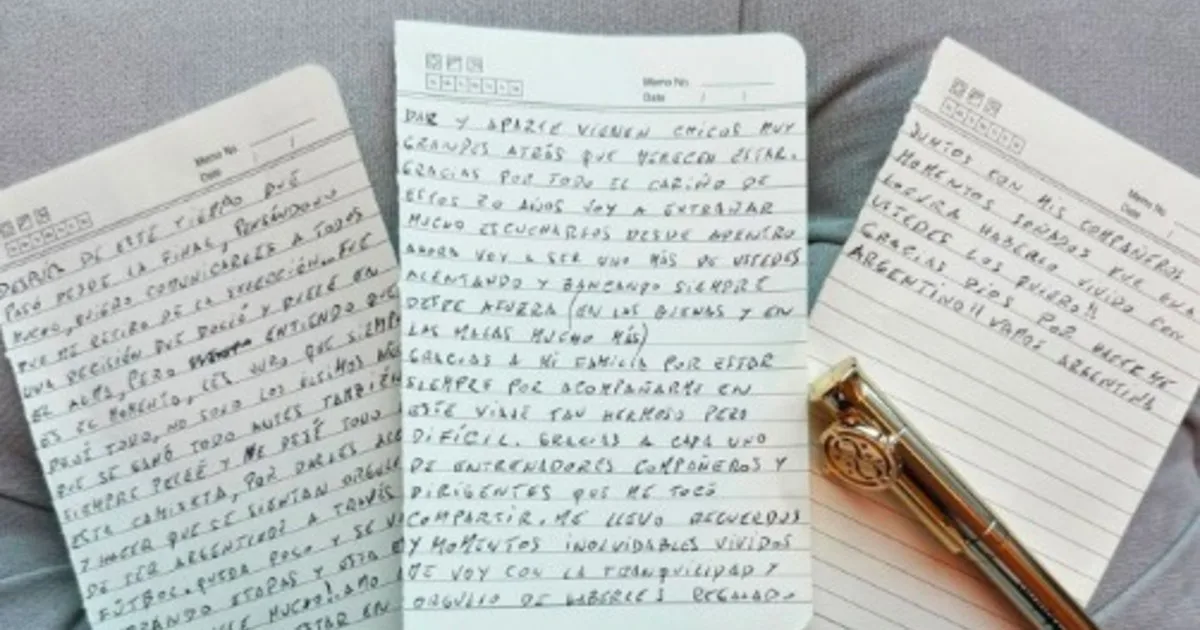 Memo No.
Date
DESPUÉS DE ESTE TIEMPO QUE
PASÓ DESDE LA FINAL, PENSÁNDOLO
MUCHO, QUIERO COMUNICARLES A TODOS
QUE ME RETIRO DE LA SELECCIÓN. FUE
UNA DECISIÓN QUE DOLIÓ Y DUELE EN
EL ALMA, PERO ENTIENDO QUE
ES EL MOMENTO, LES JURO QUE SIEMPRE
DEJÉ TODO, NO SOLO LOS ÚLTIMOS AÑOS
QUE SE GANÓ TODO ANTES TAMBIÉN
SIEMPRE PELEÉ Y ME DEJÉ TODO
ESTA CAMISETA, POR DARLES
Y HACER QUE SE SIENTAN
DE SER ARGENTINOS A TRAVÉS
FÚTBOL. QUEDA POCO Y SE
ETAPAS Y ESTA
MUCHO! AMO
ESTAR EN
Memo No.
Date / /
DAR Y APARTE VIENEN CHICOS MUY
GRANDES ATRÁS QUE MERECEN ESTAR.
GRACIAS POR TODO EL CARIÑO DE
ESTOS 20 AÑOS VOY A EXTRAÑAR
MUCHO ESCUCHARLOS DESDE ADENTRO
AHORA VOY A SER UNO MÁS DE USTEDES
ALENTANDO Y BANCANDO SIEMPRE
DESDE AFUERA (EN LAS BUENAS Y EN
LAS MALAS MUCHO MÁS)
GRACIAS A MI FAMILIA POR ESTAR
SIEMPRE POR ACOMPAÑARME EN
ESTE VIAJE TAN HERMOSO PERO
DIFÍCIL. GRACIAS A CADA UNO
DE ENTRENADORES COMPAÑEROS Y
DIRIGENTES QUE ME TOCÓ
COMPARTIR. ME LLEVO RECUERDOS
Y MOMENTOS INOLVIDABLES VIVIDOS
ME VOY CON LA TRANQUILIDAD Y
ORGULLO DE HABERLES REGALADO
Memo No.
Date
JUNTOS CON MIS COMPAÑEROS
MOMENTOS SOÑADOS FUE UNA
LOCURA HABERLO VIVIDO CON
USTEDES LOS QUIERO!!
GRACIAS DIOS POR HACERME
ARGENTINO!! VAMOS ARGENTINA